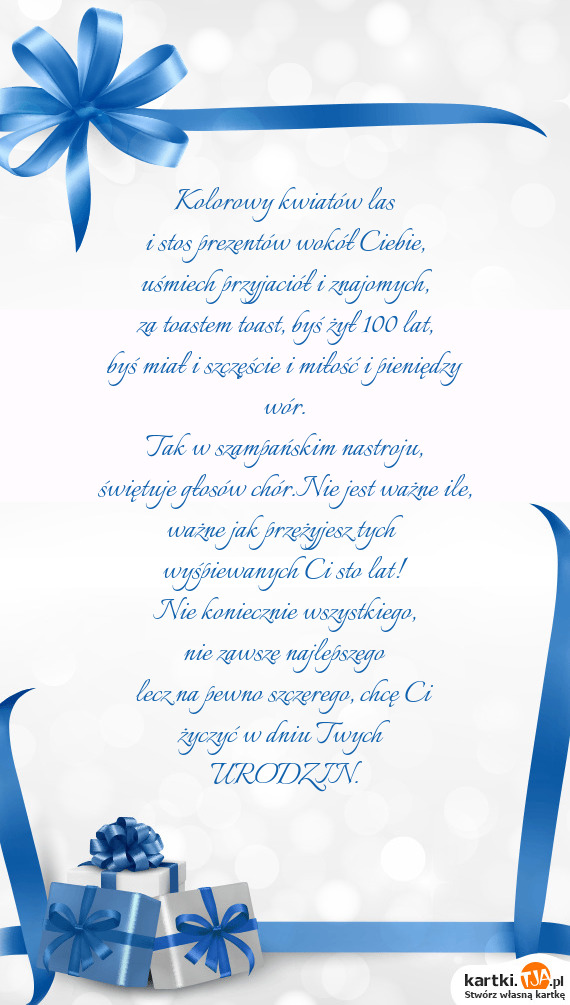 Kolorowy kwiatów las
i stos prezentów wokół Ciebie,
uśmiech przyjaciół i znajomych,
za toastem toast, byś żył 100 lat,
byś miał i szczęście i miłość i pieniędzy
wór.
Tak w szampańskim nastroju,
świętuje głosów chór.Nie jest ważne ile,
ważne jak przeżyjesz tych
wyśpiewanych Ci sto lat!
Nie koniecznie wszystkiego,
nie zawsze najlepszego
lecz na pewno szczerego, chcę Ci
życzyć w dniu Twych
URODZIN.
kartki.TJA.pl
Stwórz własną kartkę